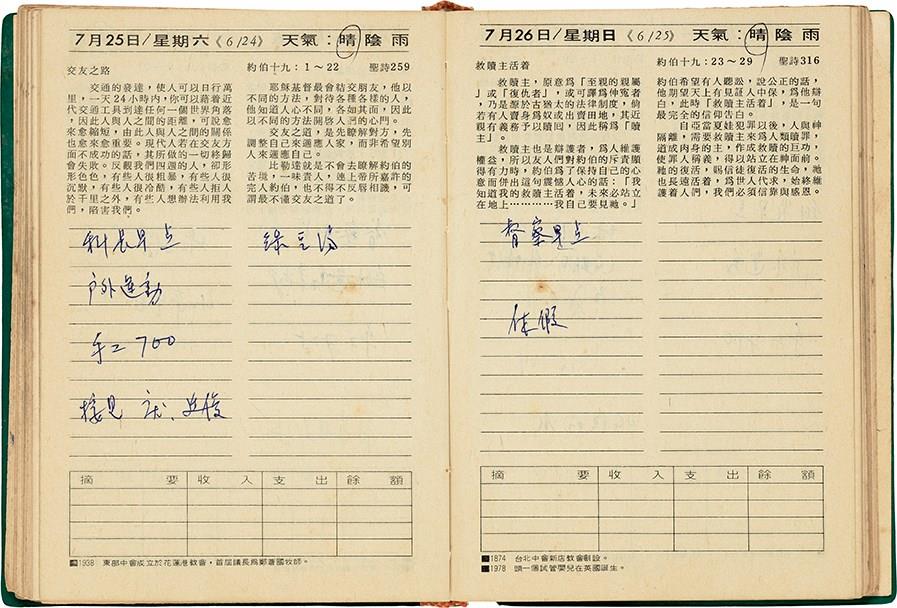 7月25日/星期六《6/24》 天氣：晴陰雨
約伯十九：1～22 聖詩259
交友之路
交通的發達，使人可以日行萬
里，一天24小時內，你可以藉着近
代交通工具到達任何一個世界角落
，因此人與人之間的距離，可說愈
來愈縮短，由此人與人之間的關係
也愈來愈重要。現代人若在交友方
面不成功的話，其所做的一切終歸
會失敗。反觀我們四週的人，卻形
形色色，有些人很粗暴，有些人很
沉默，有些人很冷酷，有些人拒人
於千里之外，有些人想辦法利用我
們，陷害我們。
耶穌基督最會結交朋友，他以
不同的方法，對待各種各樣的人，
他知道人心不同，各如其面，因此
以不同的方法開啓人間的心門。
交友之道，是先瞭解對方，先
調整自己來適應人家，而非希望別
人來適應自己。
比勒達就是不會去瞭解約伯的
苦境，一味責人，連上帝所嘉許的
完人約伯，也不得不反唇相譏，可
謂最不懂交友之道了。
科長早点
户外運動
手工 700
綠豆湯
摘要 收入 支出 餘額
■1938 東部中會成立於花蓮港教會，首屆議長爲鄭蒼國牧師。
7月26日/星期日《6/25》 天氣：晴陰雨
約伯十九：23～29 聖詩316
救贖主活着
救贖主，原意爲「至親的親屬
」或「復仇者」，或可譯爲伸寃者
，乃是源於古猶太的法律制度，倘
若有人賣身爲奴或出賣田地，其近
親有義務予以贖回，因此稱爲「贖
主」。
救贖主也是辯護者，爲人維護
權益，所以友人們對約伯的斥責顯
得有力時，約伯爲了保持自己的心
意而併出這句震憾人心的話：「我
知道我的救贖主活着，未來必站立
在地上…………我自己要見祂。」
約伯希望有人聽訟，說公正的話，
他期望天上有見証人中保，爲他辯
白，此時「救贖主活着」，是一句
最完全的信仰告白。
自亞當夏娃犯罪以後，人與神
隔離，需要救贖主來爲人類贖罪，
道成肉身的主，作成救贖的巨功，
使罪人稱義，得以站立在神面前。
祂的復活，賜信徒復活的生命，祂
也長遠活着，爲世人代求，始終維
護着人們，我們必須信靠與感恩。
督察早点
休假
摘要 收入 支出 餘額
■1874 台北中會新店教會創設。
■1978 頭一個試管嬰兒在英國誕生。